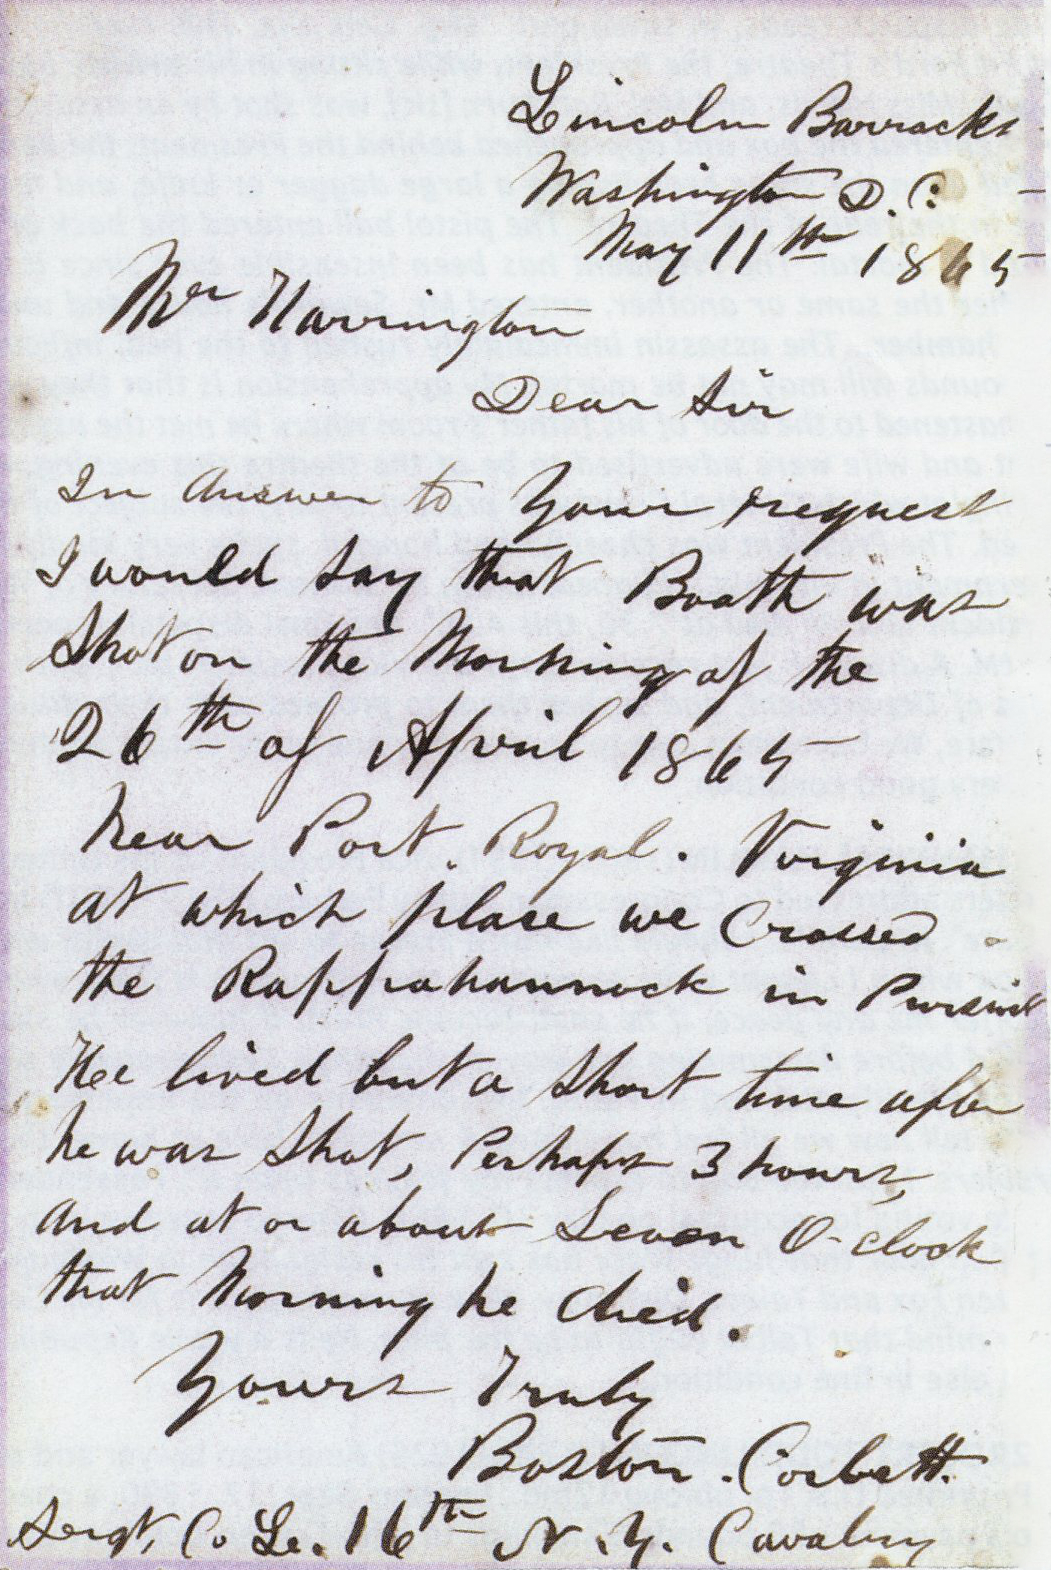 Lincoln Barracks
Washington D.C.
May 11th 1865
Mr Harrington
Dear Sir
In Answer to Your request
I would say that Booth was
Shot on the Morning of the
26th of April 1865
Near Port Royal. Virginia
at which place we Crossed
the Rappahannock in Pursuit
Hee lived but a Short time after
he was Shot, Perhaps 3 hours,
and at or about Seven O-clock
that Morning he died.
Yours Truly
Boston Corbett.
Sergt, Co L. 16th N.Y. Cavalry